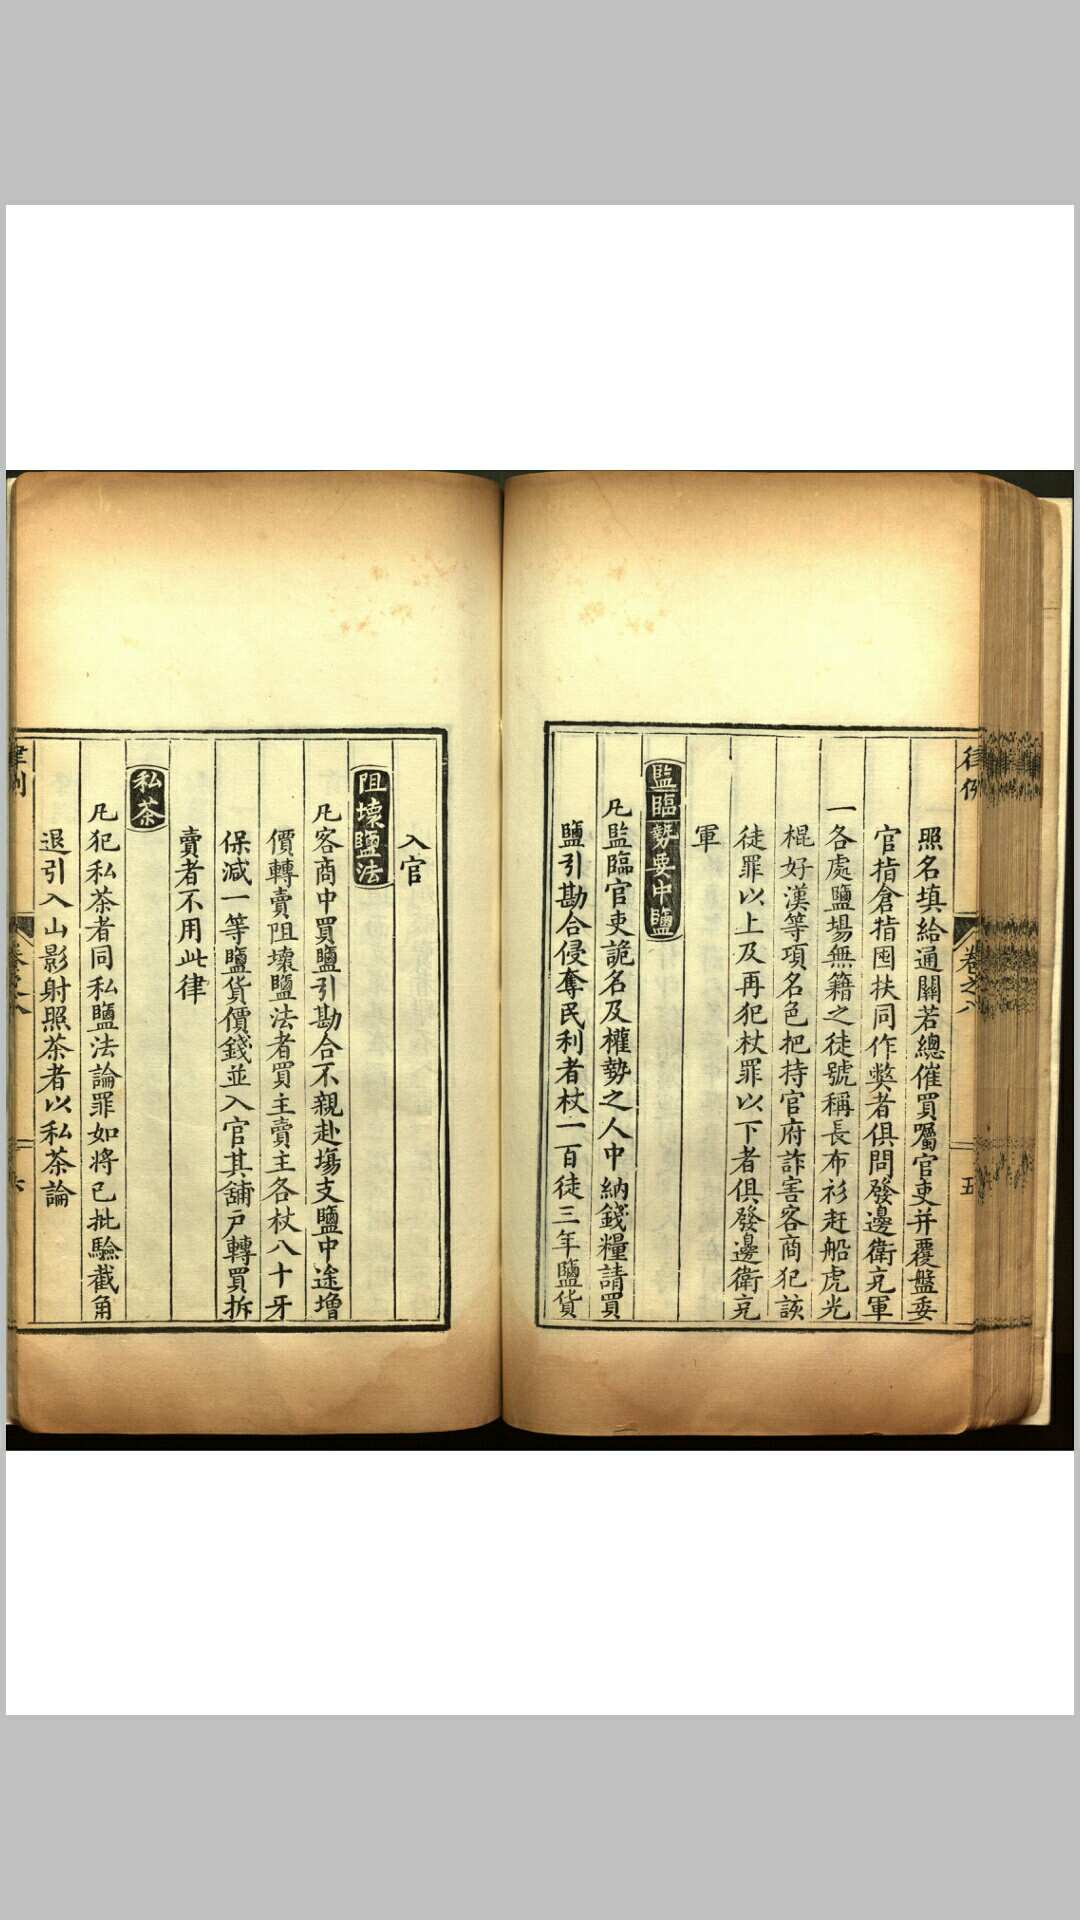 律例
卷之八
五
照名填給通關若總催買囑官吏并覆盤委
官指倉指囤扶同作弊者俱問發邊衛充軍
一各處鹽場無籍之徒號稱長布衫赶船虎光
棍好漢等項名色把持官府詐害客商犯該
徒罪以上及再犯杖罪以下者俱發邊衛充
軍
監臨勢要中鹽
凡監臨官吏詭名及權勢之人中納錢糧請買
鹽引勘合侵奪民利者杖一百徒三年鹽貨
入官
阻壞鹽法
凡客商中買鹽引勘合不親赴場支鹽中途增
價轉賣阻壞鹽法者買主賣主各杖八十牙
保減一等鹽貨價錢並入官其舖戶轉買拆
賣者不用此律
私茶
凡犯私茶者同私鹽法論罪如將已批驗截角
退引入山影射照茶者以私茶論